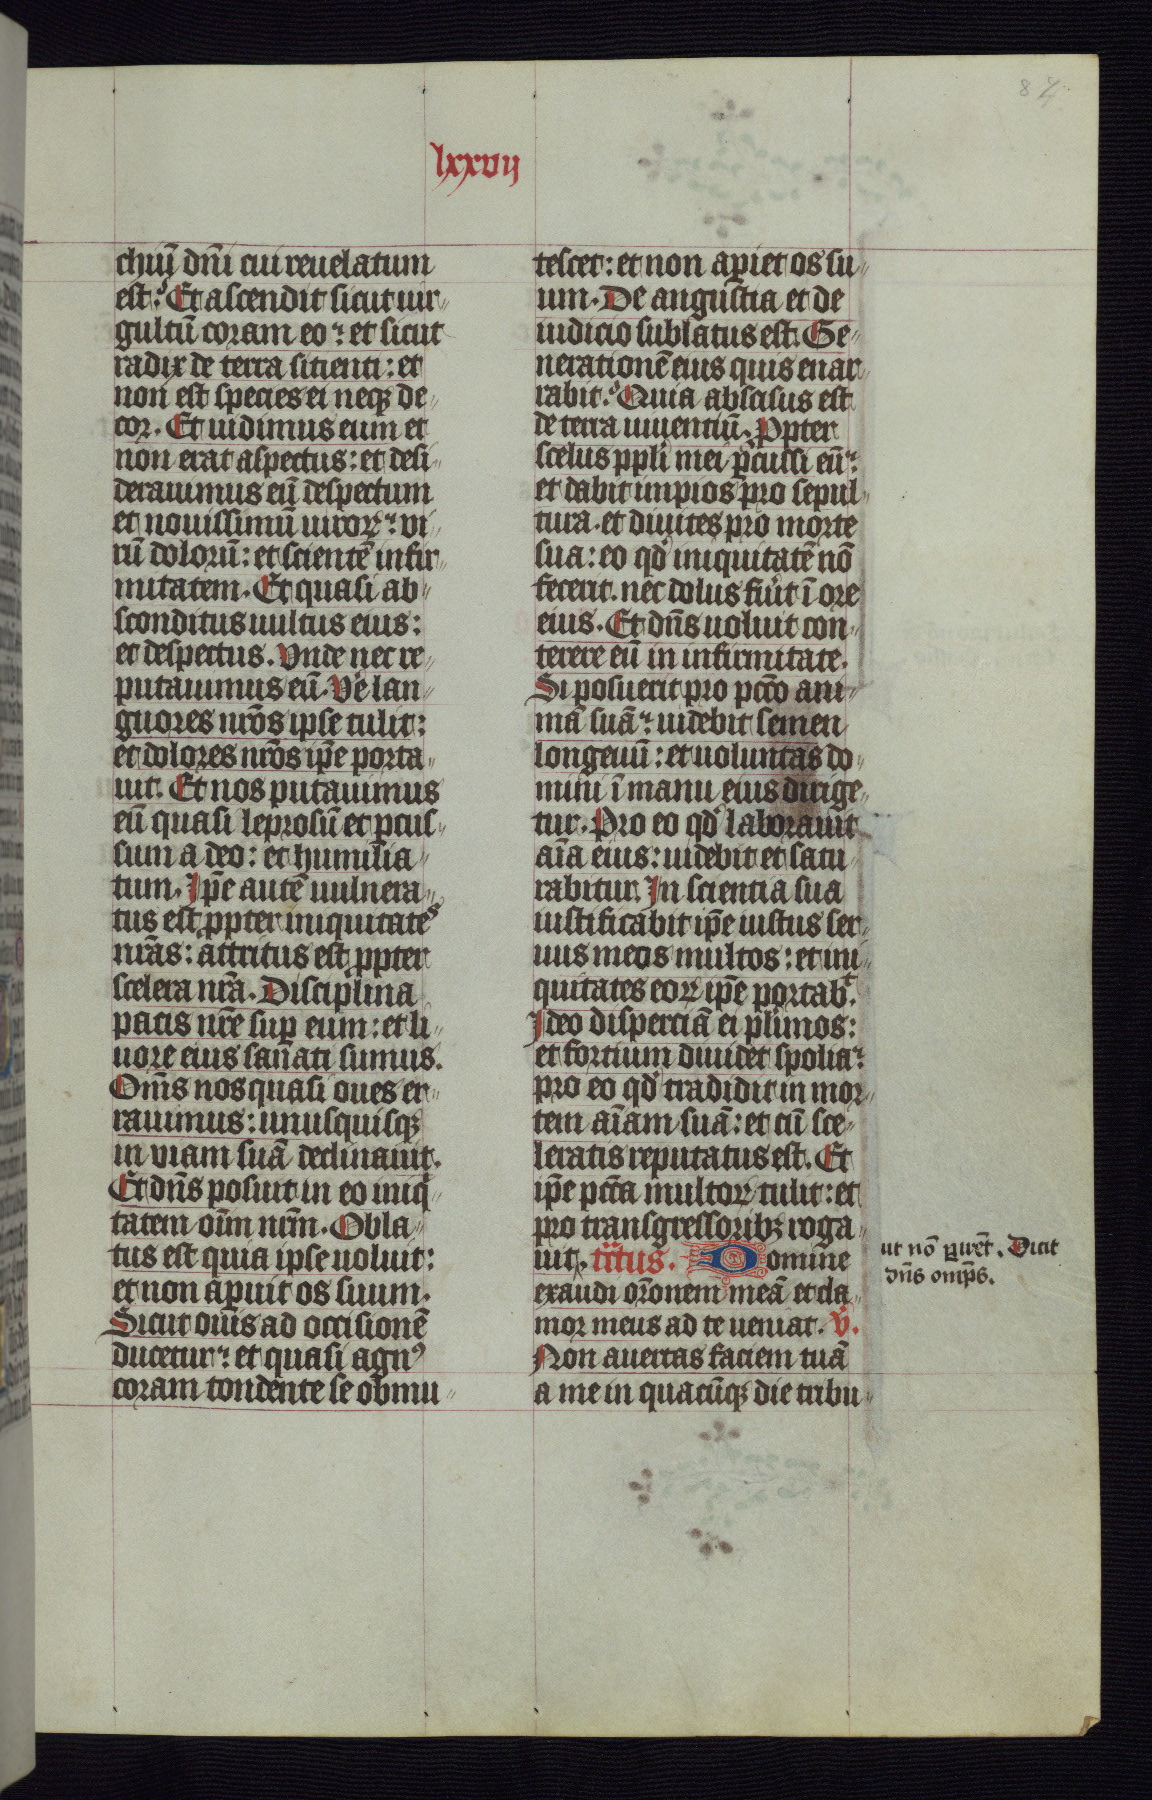 84
lxxvij
chiū dn̄i cui reuelatum
est. Et ascendit sicut uir„
gultū coram eo: et sicut
radix de terra sitienti: et
non est species ei neqꝫ de„
cor. Et uidimus eum et
non erat aspectus: et desi„
derauimus eū despectum
et nouissimū uiroꝝ: vi„
rū dolorū: et scientē infir„
mitatem. Et quasi ab„
sconditus uultus eius:
et despectus. Vnde nec re„
putauimus eū. Ve̾ lan„
guores nr̄os ipse tulit:
et dolores nr̄os ip̄e porta„
uit. Et nos putauimus
eū quasi leprosū et ꝑcus„
sum a deo: et humilia„
tum. Ip̄e autē uulnera„
tus est ꝓpter iniquitates
nr̄as: attritus est ꝓpter
scelera nr̄a. Disciplina
pacis nr̄e suꝑ eum: et li„
uore eius sanati sumus.
Om̄s nos quasi oues er„
rauimus: unusquisqꝫ
in viam suā declinauit.
Et dn̄s posuit in eo iniq„
tatem oīm nr̄m. Obla„
tus est quia ipse uoluit:
et non apuit os suum.
Sicut ouis ad occisionē
ducetur: et quasi agnꝰ
coram tondente se obmu„
tescet: et non aꝑiet os su„
um. De angustia et de
iudicio sublatus est. Ge„
nerationē eius quis enar„
rabit. Quia abscisus est
de terra uiuentiū. Ꝓpter
scelus ppl̄i mei ꝑcussi eū:
et dabit impios pro sepul„
tura. et diuites pro morte
sua: eo qd̾ iniquitatē nō
fecerit. nec dolus fu̾it ī ore
eius. Et dn̄s uoluit con„
terere eū in infirmitate.
Si posuerit pro pcc̄o ani„
mā suā: uidebit semen
longeuū: et uoluntas do„
mini ī manu eius dirige„
tur. Pro eo qd̾ laborauit
aīa eius: uidebit et satu„
rabitur. In scientia sua
iustificabit ip̄e iustus ser„
uus meus multos: et ini„
quitates eoꝝ ip̄e portabᵗ.
Ideo dispertiā ei pl̾imos:
et fortium diuidet spolia:
pro eo qd̾ tradidit in mor„
tem aīam suā: et cū sce„
leratis reputatus est. Et
ip̄e pcc̄a multoꝝ tulit: et
pro transgressoribꝫ roga„
uit. tr̄tus. Domine
exaudi or̄onem meā et cla„
mor meus ad te ueniat. V̾.
Non auertas faciem tuā
a me in quacūqꝫ die tribu„
ut nō ꝑirēt. Dicit
dn̄s omp̄s.